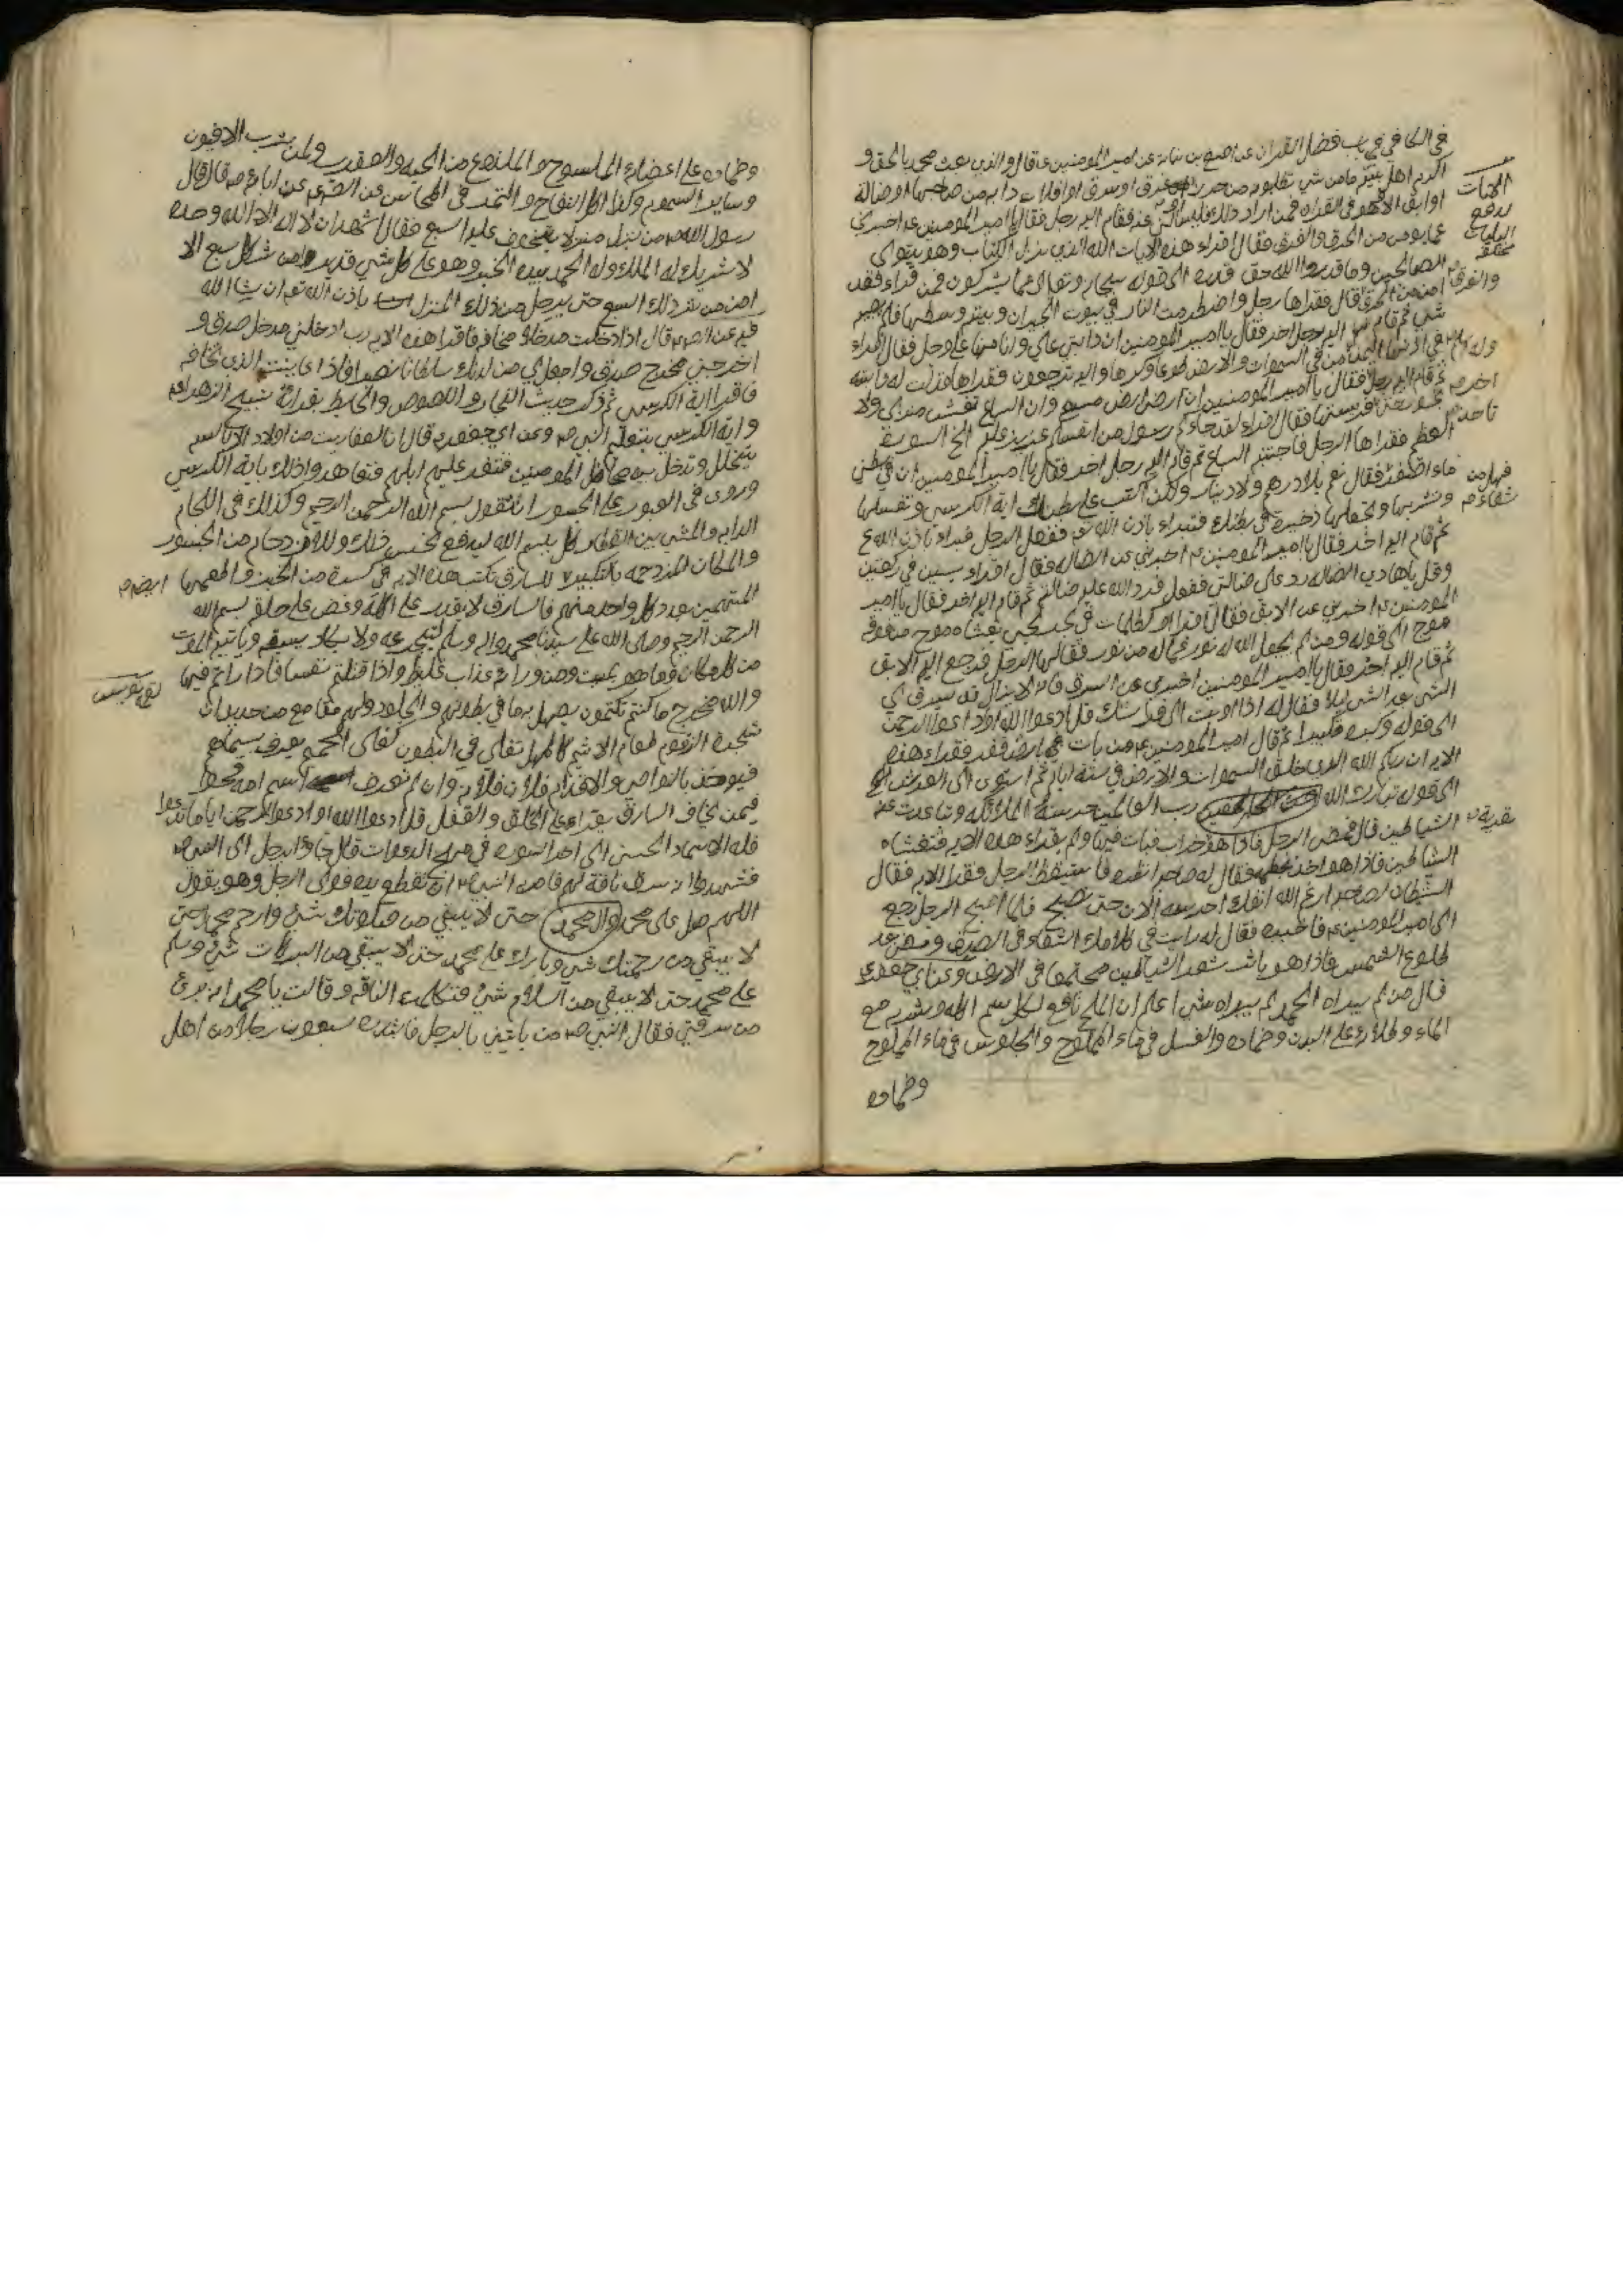 في الكافي في باب فضل القران عن اصبغ بن نباته عن امير المومنين ع قال والذي بعث محمد بالحق و
اكرم اهل بيته ما من شي تطلبونه من حرز من حرق او غرق او سرق او افلات دابه من صاحبها او ضالة
او ابق الا وهو في القران فمن اراد ذلك فليسألني عنه فقام اليه رجل فقال يا امير المومنين ع اخبرني
عما يومن من الحرق والغرق فقال اقراء هذه الايات الله الذي نزل الكتاب وهو يتولى
الصالحين وما قدروا الله حق قدره الى قوله سبحانه وتعالى عما يشركون فمن قراءها فقد
امن من الحرق والغرق قال فقراها رجل واضطرمت النار في بيوت الجيران وبيته وسطها فلم يصبه
شي ثم قام اليه رجل اخر فقال يا امير المومنين ان دابتي علي وانا منها على وجل فقال اقراء
في اذنها اليمنى وله اسلم من في السموات والارض طوعا وكرها واليه ترجعون فقراها فذلت له دابته
ثم قام اليه رجل اخر فقال يا امير المومنين ان ارضي ارض مسبعه وان السباع تغشى منزلي ولا
تجوز حتى تاخذ فريستها فقال اقراء لقد جاءكم رسول من انفسكم عزيز عليه الخ السورة
العظيم فقراها الرجل فاجتنبه السباع ثم قام اليه رجل اخر فقال يا امير المومنين ان في بطني
ماء اصفر فهل من شفاء فقال نعم بلا درهم ولا دينار ولكن اكتب على بطنك اية الكرسي وتغسلها
وتشربها وتجعلها ذخيرة في بطنك فتبراء باذن الله تع ففعل الرجل فبراء باذن الله تع
ثم قام اليه اخر فقال يا امير المومنين ع اخبرني عن الضاله فقال اقراء يسين في ركعتين
وقل يا هادي الضاله رد على ضالتي ففعل فرد الله عليه ضالته ثم قام اليه اخر فقال يا امير
المومنين ع اخبرني عن الابق فقال اقراء او كظلمات في بحر لجي يغشاه موج من فوقه
موج الى قوله ومن لم يجعل الله له نورا فما له من نور فقالها الرجل فرجع اليه الابق
ثم قام اليه اخر فقال يا امير المومنين اخبرني عن السرق فانه لا يزال قد يسرق لي
الشي بعد الشي ليلا فقال له اذا اويت الى فراشك قل ادعوا الله او ادعوا الرحمن
الى قوله وكبره تكبيرا ثم قال امير المومنين ع من بات في ارض قفر فقراء هذه
الايه ان ربكم الله الذي خلق السموات والارض في ستة ايام ثم استوى الى العرش الخ
الى قوله تبارك الله رب العالمين حرسته الملائكه وتباعدت عنه
الشياطين قال فمضى الرجل فاذا هو بقرية خراب فبات فيها ولم يقراء هذه الايه فتغشاه
الشياطين فاذا هو اخذ بخطمه فقال له صاحبه انظره فاستيقظ الرجل فقراء الايه فقال
الشيطان لصاحبه ارغم الله انفك احرسه الان حتى يصبح فلما اصبح الرجل رجع
الى امير المومنين ع فاخبره فقال له رايت في كلامك الشفاء والصدق ومضى بعد
طلوع الشمس فاذا هو باثر شعر الشياطين مجتمعا في الارض وعن ابي جعفر ع
قال من لم يبراه الحمد لم يبراه شي اعلم ان الملح نافع لكل سم اكله وشربه مع
الماء وطلاؤه على البدن وضماده والغسل في ماء المملوح والجلوس في ماء المملوح
وضماده
وضماده على اعضاء الملسوع والملدوغ من الحيه والعقرب ولمن شرب الافيون
وسائر السموم وكذا اكل التفاح والتمر في المحاسن عن الصادق ع عن ابائه ع قال قال
رسول الله ص من نزل منزلا يتخوف عليه السبع فقال اشهد ان لا اله الا الله وحده
لا شريك له له الملك وله الحمد بيده الخير وهو على كل شي قدير من شر كل سبع الا
امن من شر ذلك السبع حتى يرحل من ذلك المنزل باذن الله تع ان شاء الله
فيه عن الص ع قال اذا دخلت مدخلا تخافه فاقرا هذه الايه رب ادخلني مدخل صدق و
اخرجني مخرج صدق واجعل لي من لدنك سلطانا نصيرا فاذا عاينت الذي تخافه
فاقرا اية الكرسي ثم ذكر حديث التجار واللصوص والحايط بقراءة تسبيح الزهراء
واية الكرسي بتعليم النبي ص وعن ابي جعفر ع قال ان العفاريت من اولاد الابالسه
يتخلل وتدخل بين محامل المومنين فتنفر عليهم ابلهم فتعاهدوا ذلك باية الكرسي
وروى في العبور على الجسور ان تقول بسم الله الرحمن الرحيم وكذلك في اللجام
الدابه والمشي بين القطار كل بسم الله ليدفع نحس ذلك وللازدحام من الجسور
والمكان المزدحمه بالتكبير للسارق تكتب هذه الايه في كسرة من الخبز والطعمها
المتهمين بعدد كل واحد منهم فالسارق لا يقدر على اكله وغص على حلقه بسم الله
الرحمن الرحيم وصلى الله على سيدنا محمد واله وسلم يتجرعه ولا يكاد يسيغه وياتيه الموت
من كل مكان وما هو بميت ومن ورائه عذاب غليظ واذا قتلتم نفسا فادارأتم فيها
والله مخرج ما كنتم تكتمون يصهر به ما في بطونهم والجلود ولهم مقامع من حديد ان
شجرة الزقوم طعام الاثيم كالمهل تغلي في البطون كغلي الحميم يعرف بسيماهم
فيوخذ بالنواصي والاقدام فلان فلانه وان لم تعرف اسم امه فحوا
فيمن يخاف السارق يقراء على الحلق والقفل قل ادعوا الله او ادعوا الرحمن اياما تدعوا
فله الاسماء الحسنى الى اخر السوره في الدعوات قال جاؤا برجل الى النبي ص
فشهدوا انه سرق ناقة لهم فامر النبي ص ان تقطع يده فولى الرجل وهو يقول
اللهم صل على محمد وال محمد حتى لا يبقى من صلوتك شي وارحم محمدا حتى
لا يبقى من رحمتك شي وبارك على محمد حتى لا يبقى من البركات شي وسلم
على محمد حتى لا يبقى من السلام شي فتكلمت الناقه وقالت يا محمد انه بري
من سرقتي فقال النبي ص من ياتيني بالرجل فابتدره سبعون رجلا من اهل